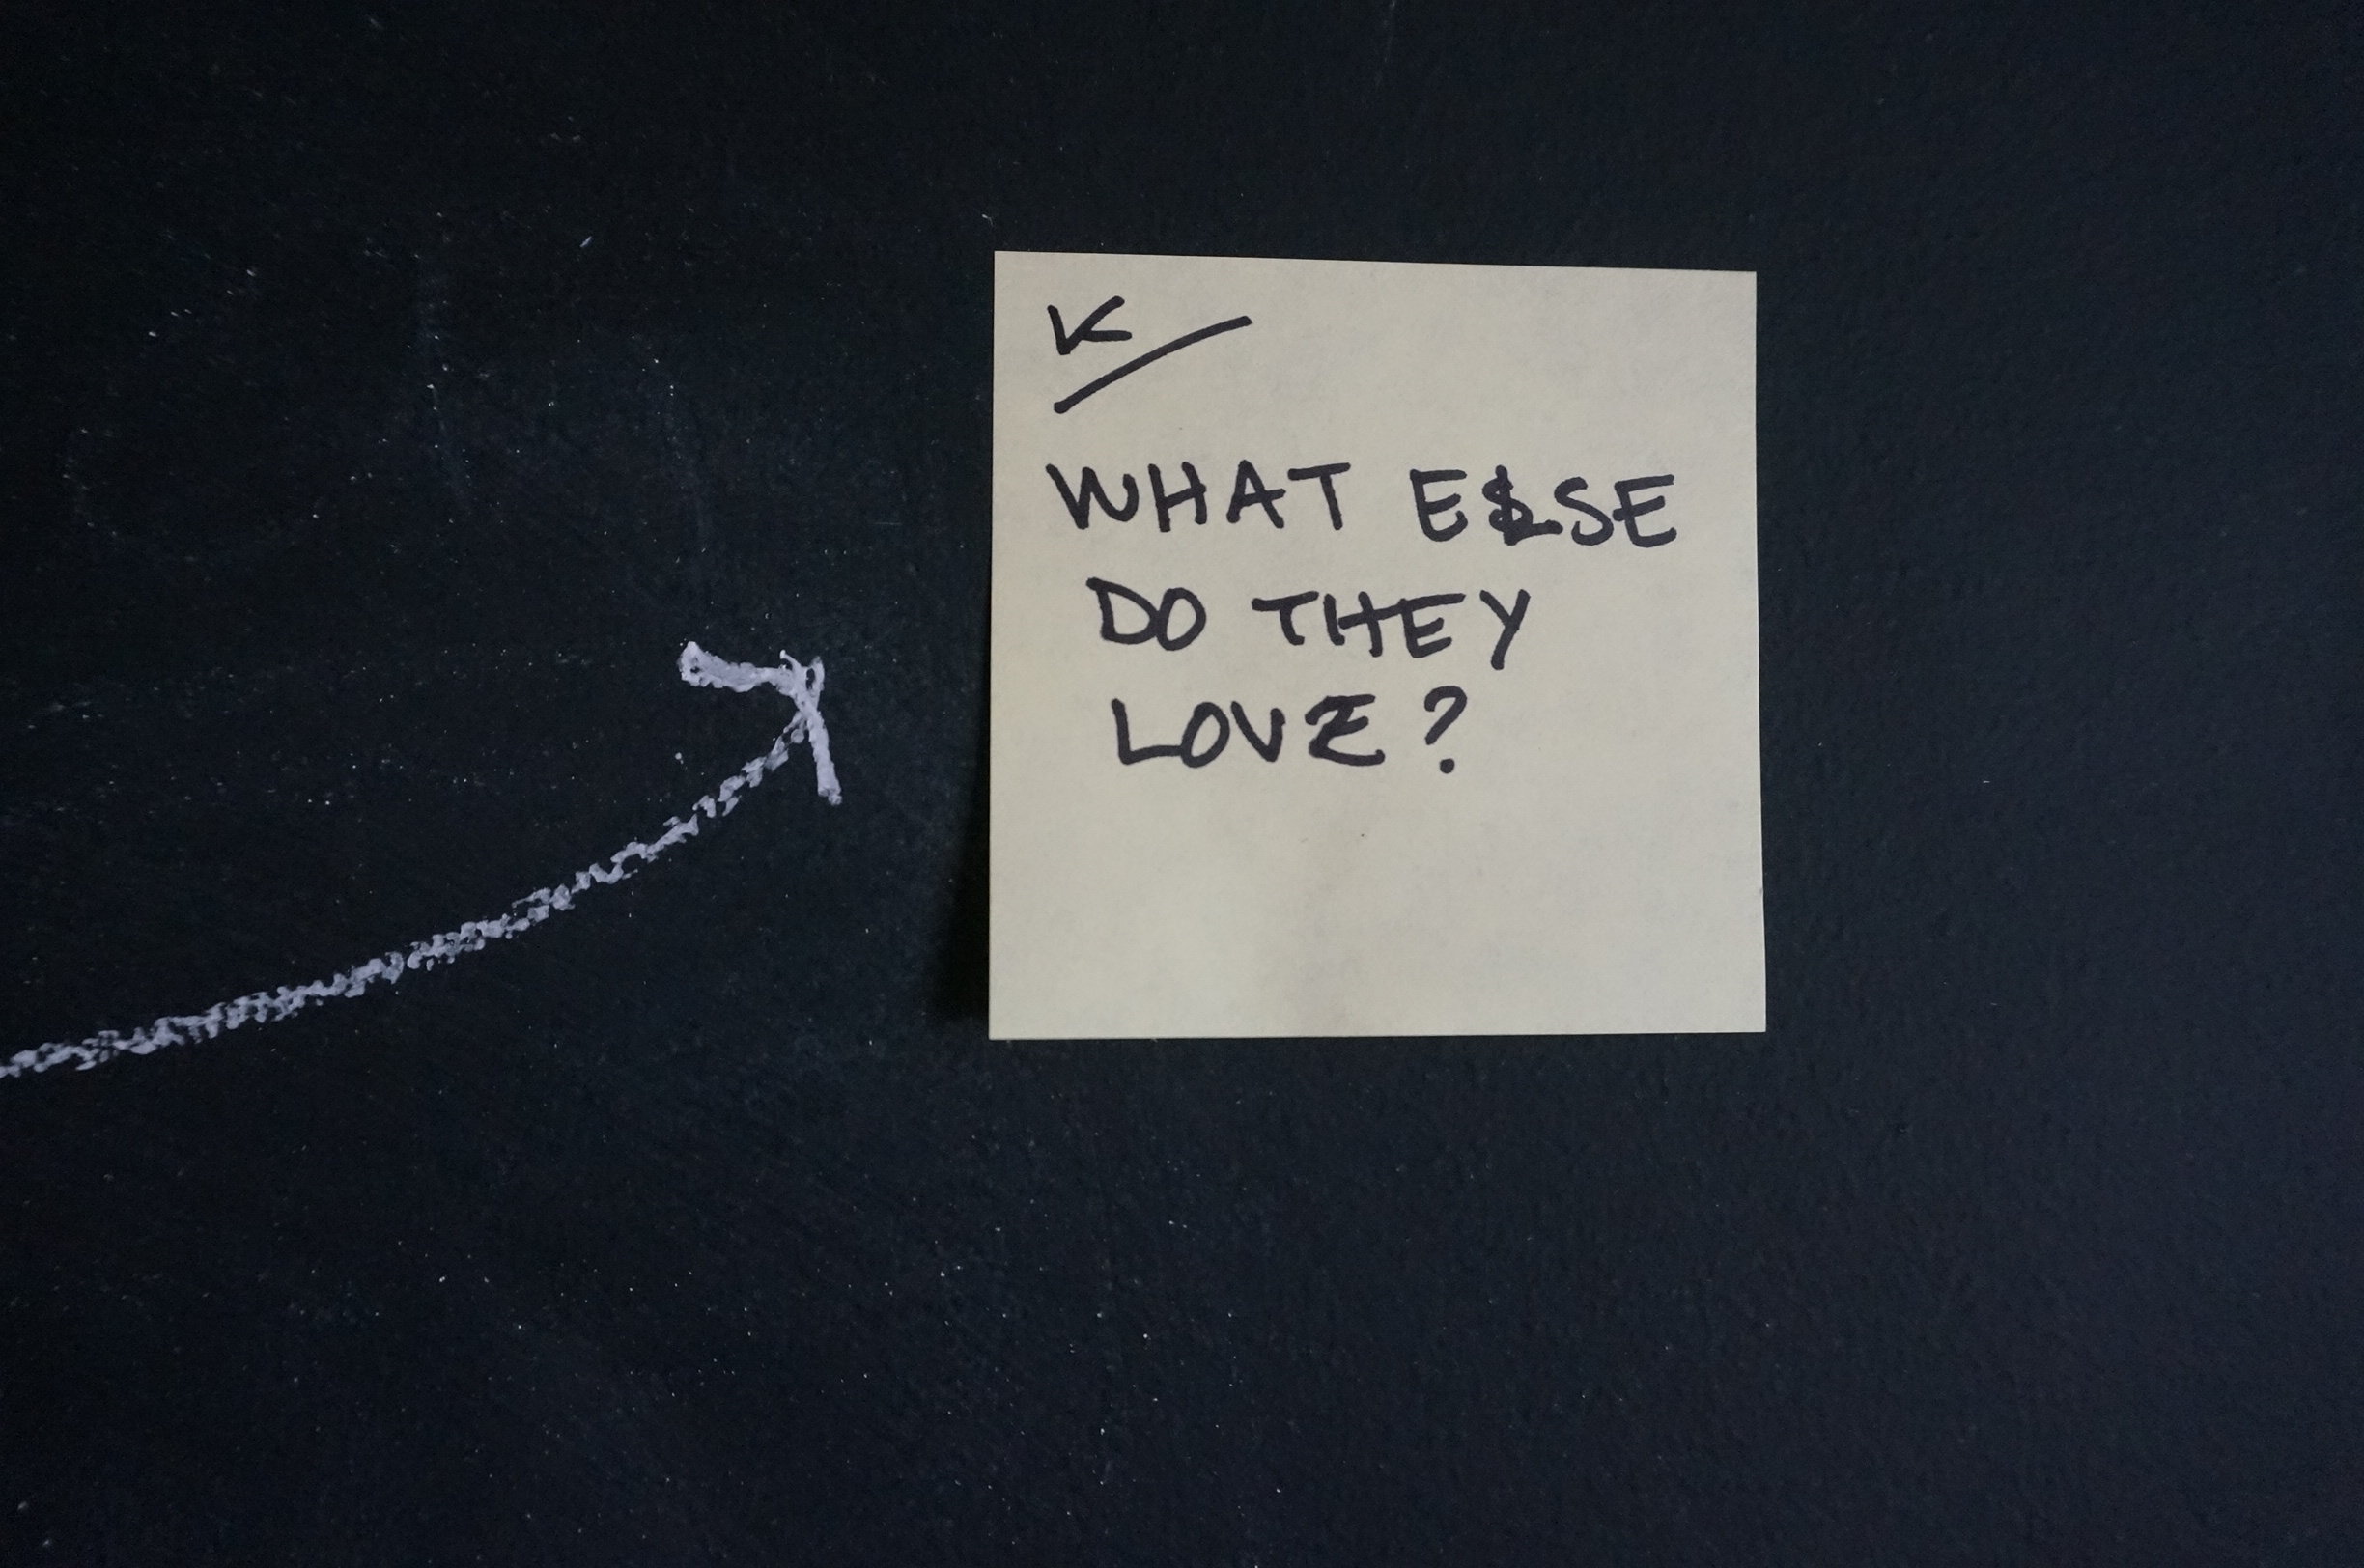 K
WHAT ELSE
DO THEY
LOVE?